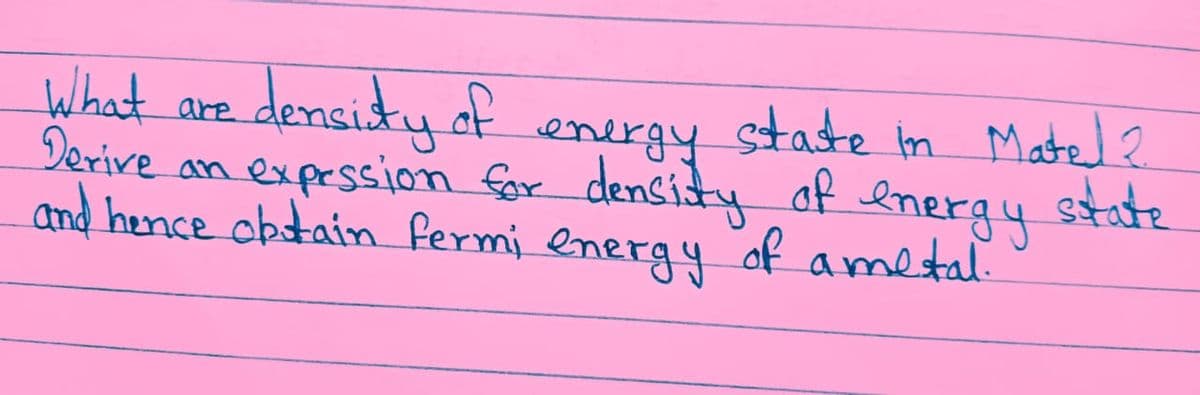 What are density of energy state in Matel?
Derive an exprssion for density of energy state
and hence obtain fermi energy of a metal.